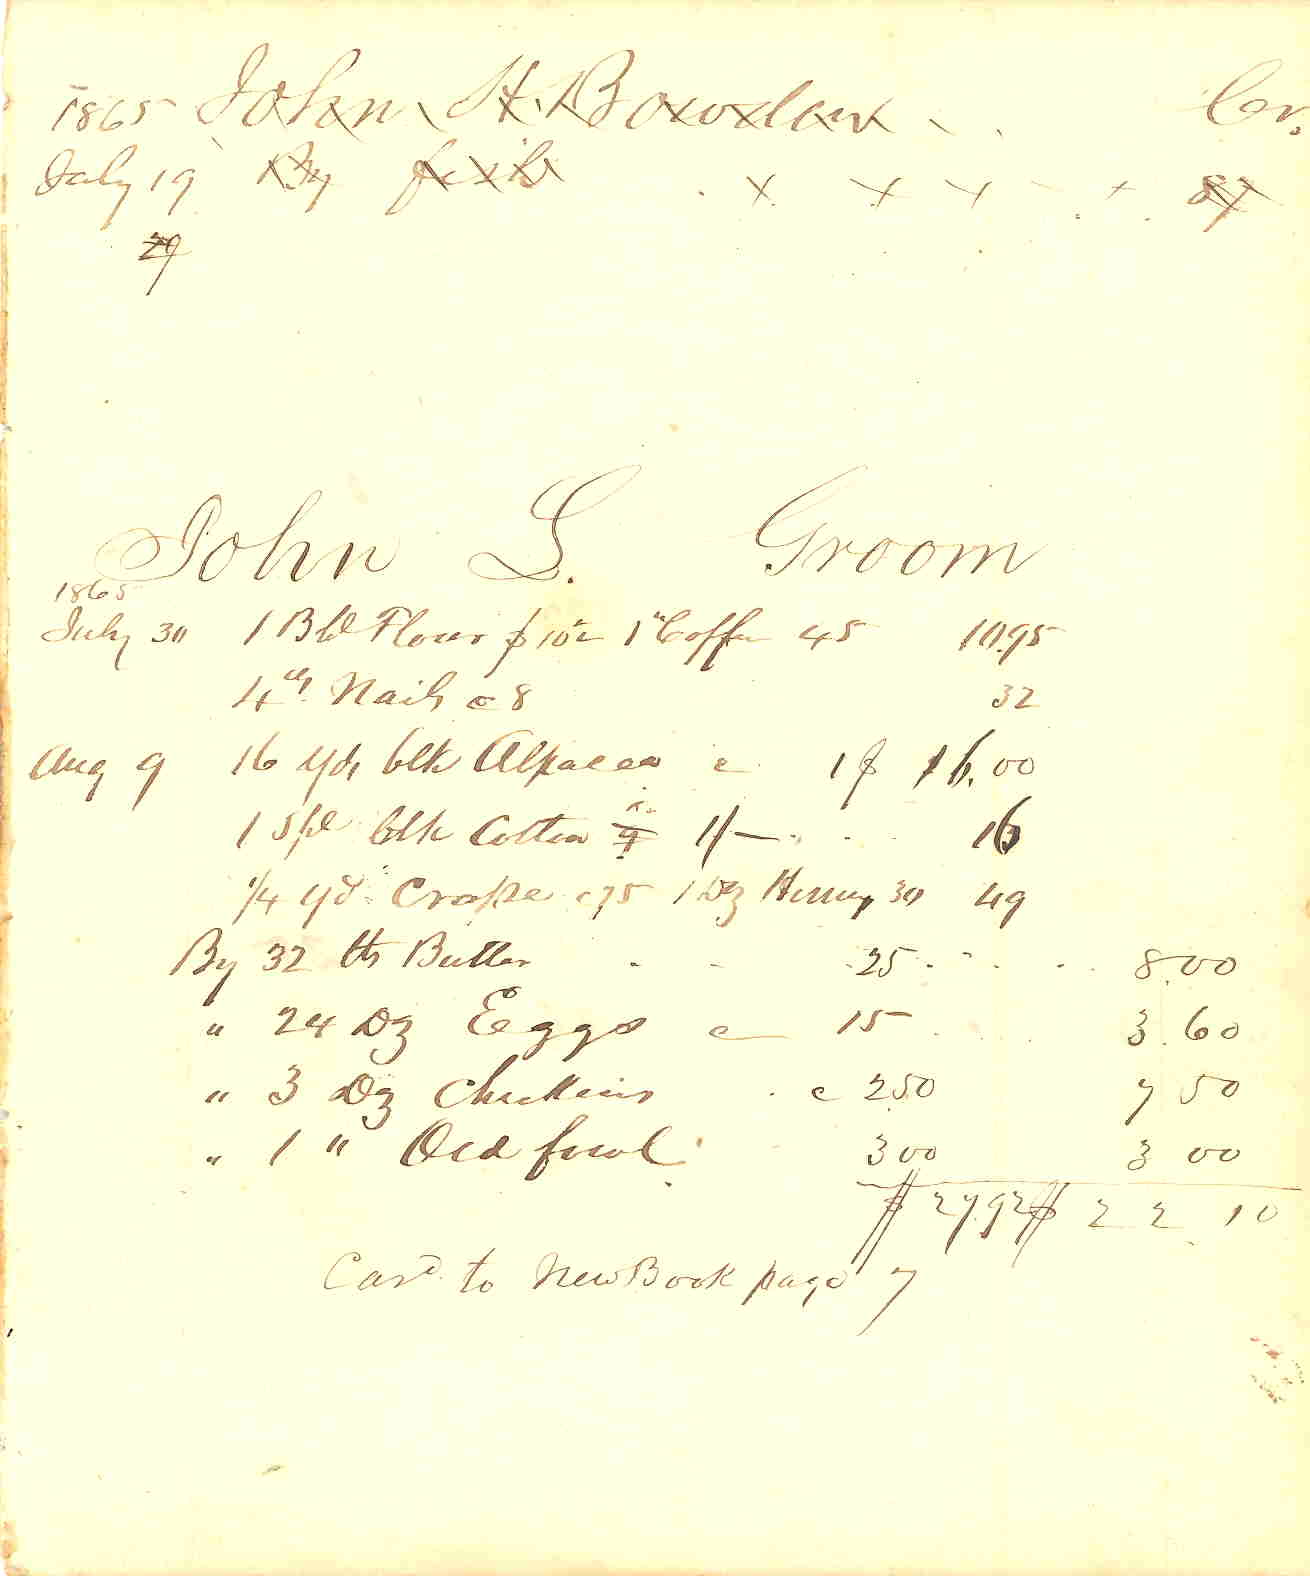 1865 John H. Bowden Cr.
July 19 By 87
29
John L. Groom
1865
July 30 1 Bbl Flour $10 1 lb Coffee 45 10.95
4 lbs Nails @ 8 32
Aug 9 16 yds blk Alpacca @ 1$ 16.00
1 Spl blk Cotton 1/- 16
1/4 yd Crape @ 75 1 Dz 30 49
By 32 lbs Butter 25 8.00
" 24 Dz Eggs @ 15 3.60
" 3 Dz Chickens @ 2.50 7 50
" 1 " Old fowl 3 00 3 00
$ 27.92 $ 22 10
Card to New Book page 7